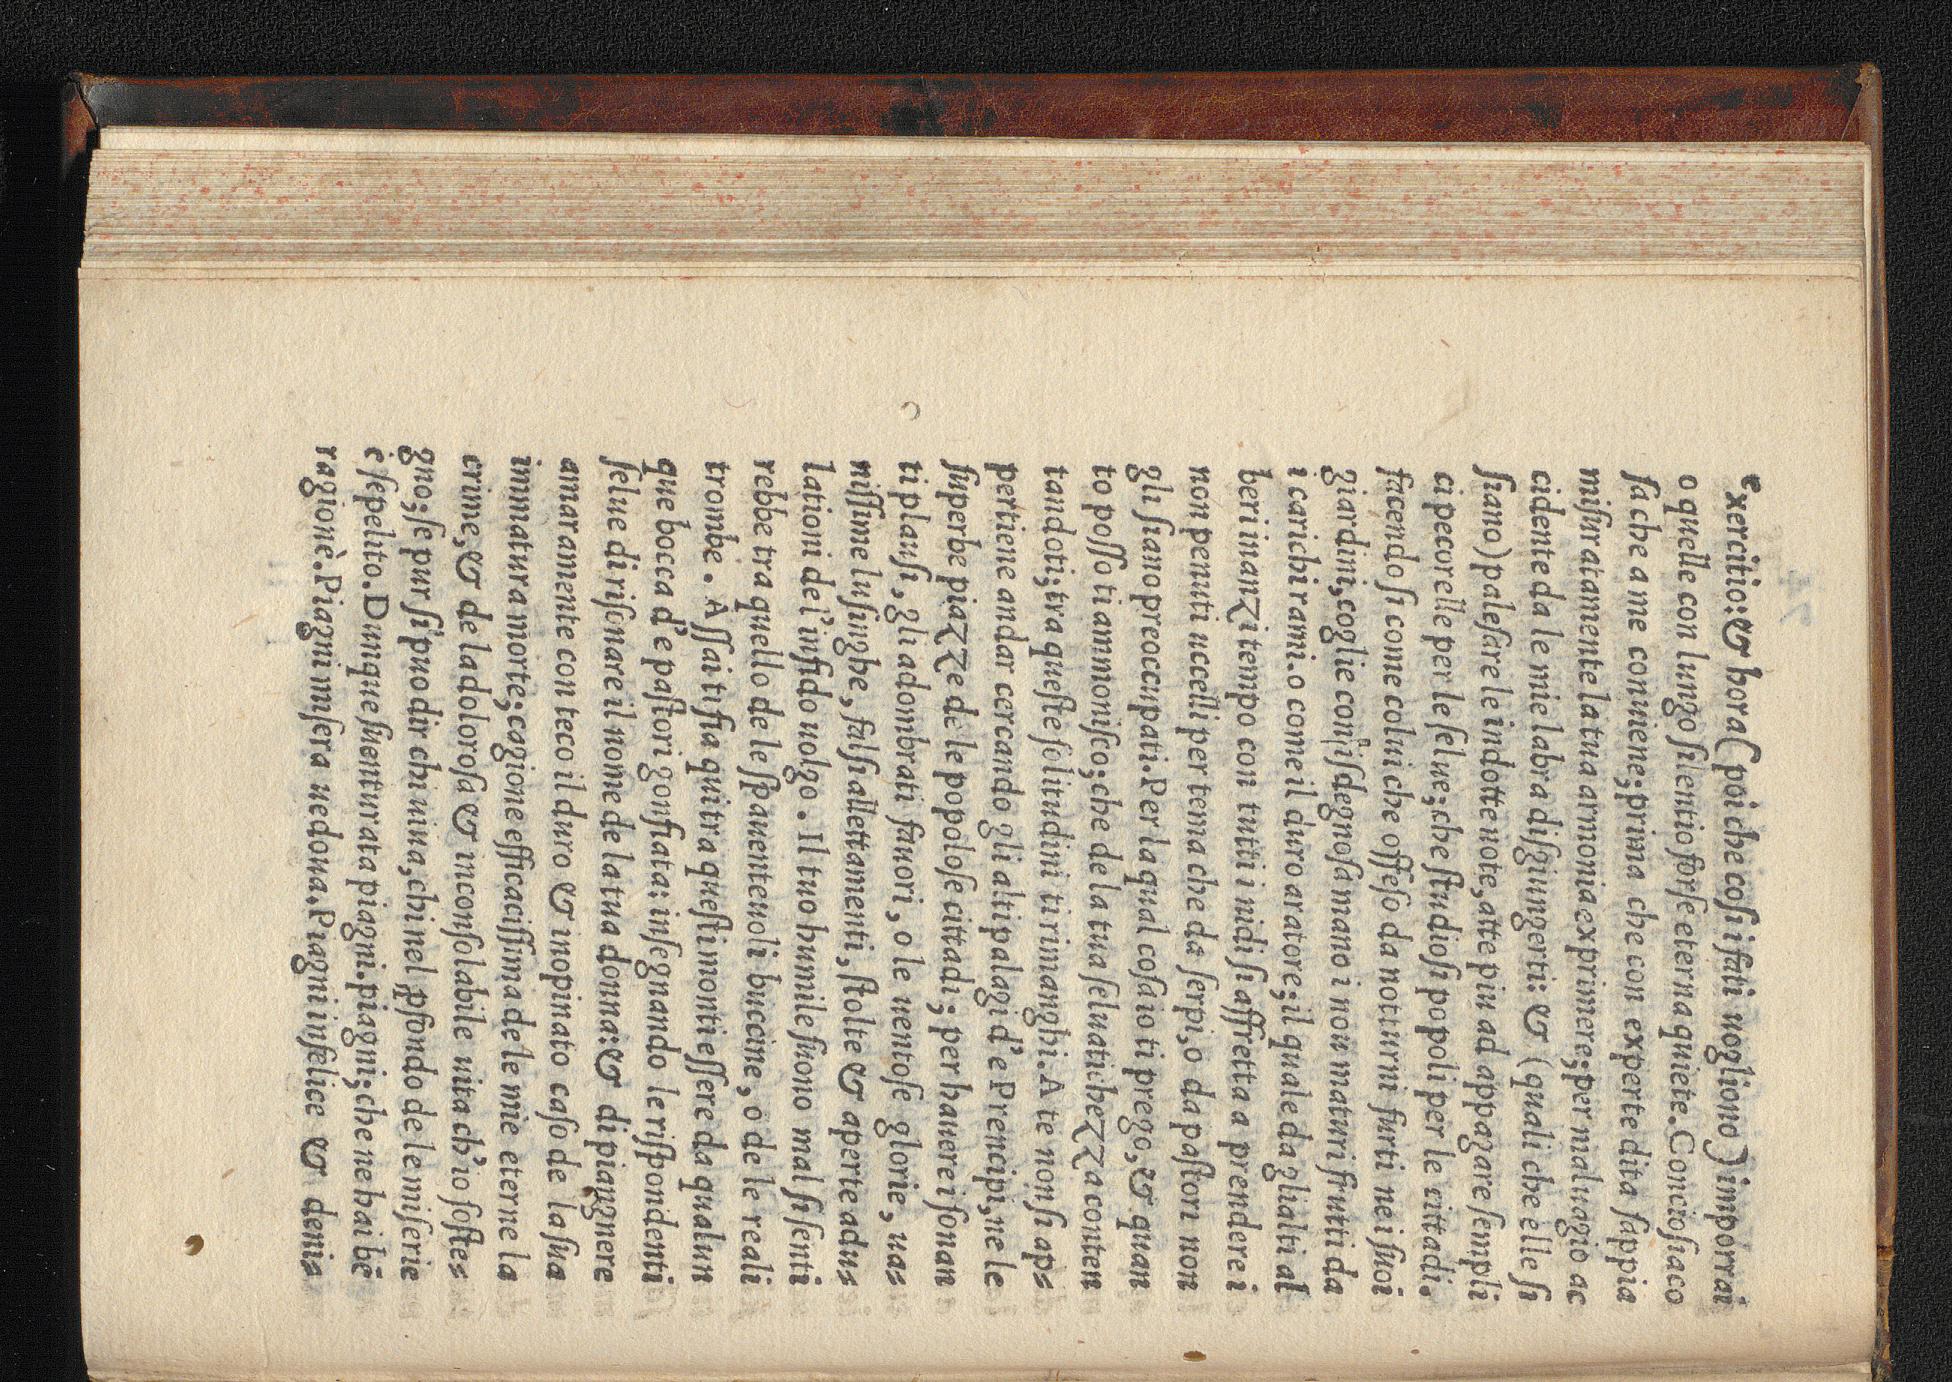 exercitio: & hora (poi che coſi i fati uogliono) imporrai
o quelle con lungo ſilentio forſe eterna quiete. Concioſiaco
ſa che a me conuiene; prima che con experte dita ſappia
miſuratamente la tua armonia exprimere; per maluagio ac
cidente da le mie labra diſgiungerti: & (quali che elle ſi
ſiano) paleſare le indotte note, atte piu ad appagare ſempli
ci pecorelle per le ſelue; che ſtudioſi popoli per le cittadi.
facendo ſi come colui che offeſo da notturni furti nei ſuoi
giardini, coglie con iſdegnoſa mano i non maturi frutti da
i carichi rami. o come il duro aratore; il quale da gli alti al
beri inanzi tempo con tutti i nidi ſi affretta a prendere i
non pennuti uccelli per tema che da ſerpi, o da paſtori non
gli ſiano preoccupati. Per la qual coſa io ti prego, & quan
to poſſo ti ammoniſco; che de la tua ſeluatichezza conten
tandoti; tra queſte ſolitudini ti rimanghi. A te non ſi ap⸗
pertiene andar cercando gli alti palagi d'e Prencipi, ne le
ſuperbe piazze de le popoloſe cittadi; per hauere i ſonan
ti plauſi, gli adombrati fauori, o le uentoſe glorie, ua⸗
niſſime luſinghe, falſi allettamenti, ſtolte & aperte adu⸗
lationi de l'infido uolgo. Il tuo humile ſuono mal ſi ſenti
rebbe tra quello de le ſpauenteuoli buccine, o de le reali
trombe. Aſſai ti fia qui tra queſti monti eſſere da qualun
que bocca d'e paſtori gonfiata: inſegnando le riſpondenti
ſelue di riſonare il nome de la tua donna: & di piangnere
amaramente con teco il duro & inopinato caſo de la ſua
immatura morte; cagione efficaciſſima de le mie eterne la
crime, & de la doloroſa & inconſolabile uita ch'io ſoſte⸗
gno; ſe pur ſi puo dir chi uiua, chi nel ꝓfondo de le miſerie
è ſepelito. Dunque ſuenturata piagni. piagni; che ne hai bē
ragionè. Piagni miſera uedoua. Piagni infelice & deni⸗